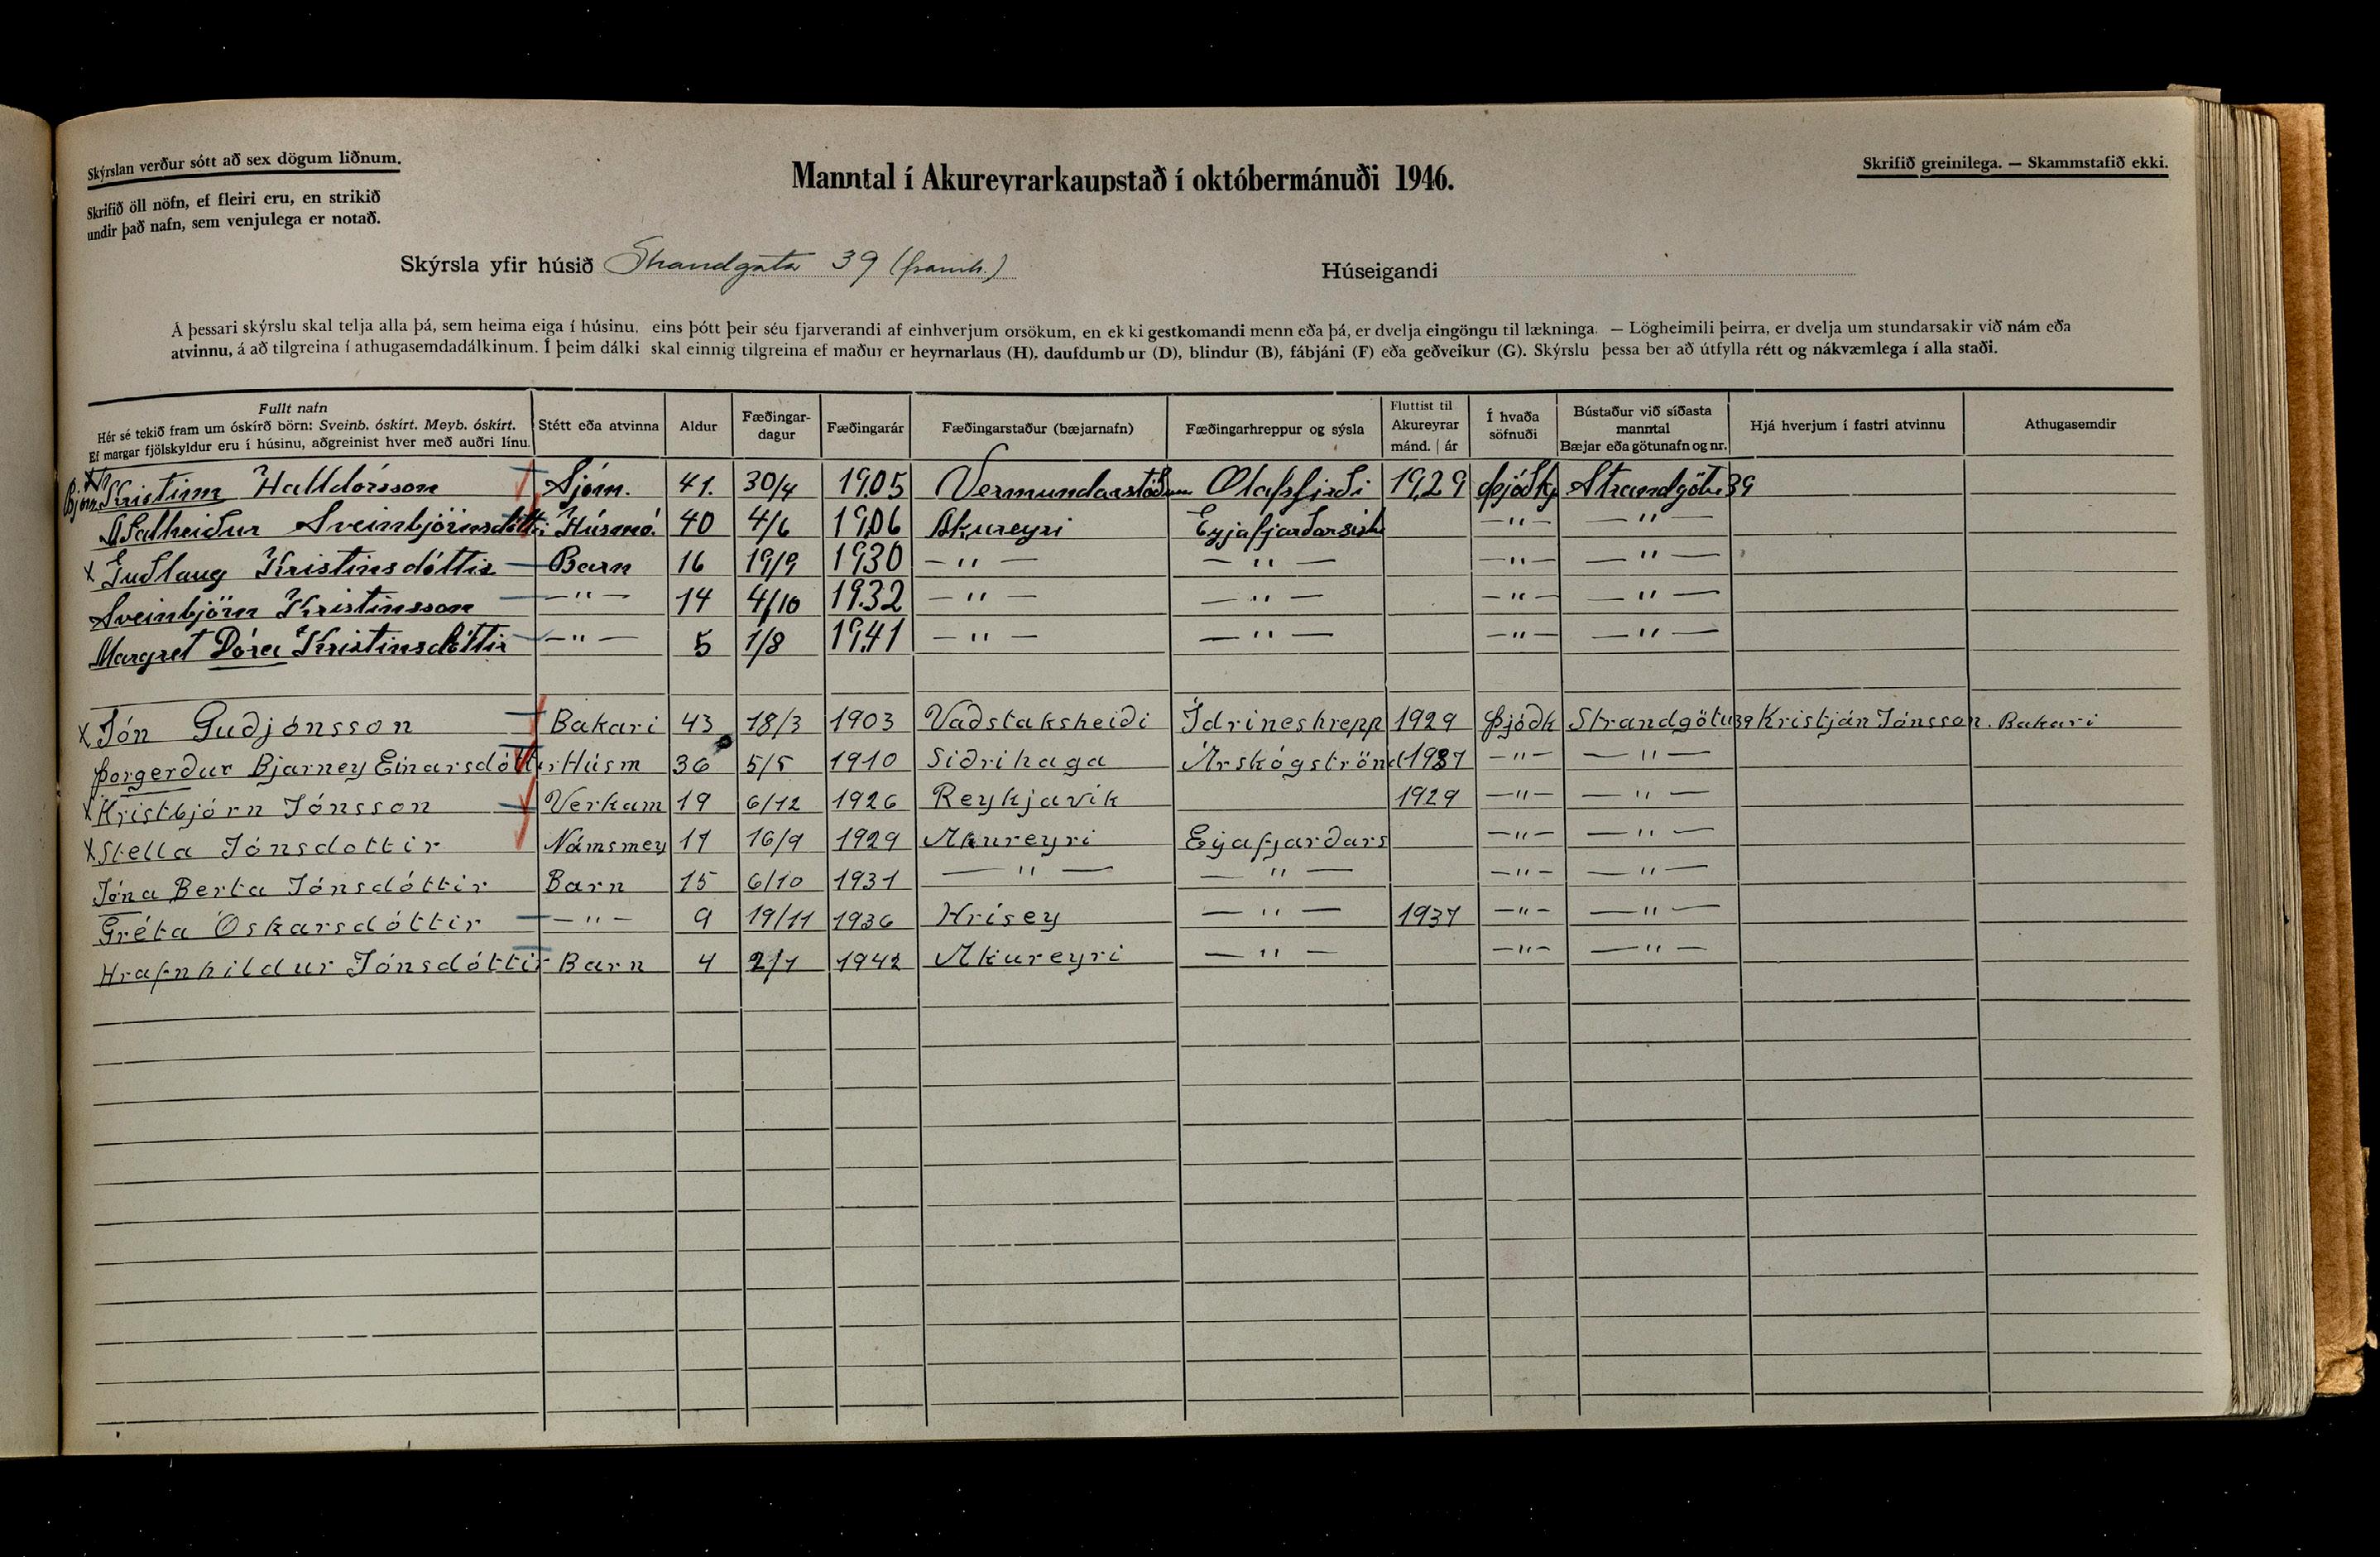 Skýrslan verður sótt að sex dögum liðnum.
Skrifið öll nöfn, ef fleiri eru, en strikið
undir það nafn, sem venjulega er notað.
Manntal í Akureyrarkaupstað í októbermánuði 1946.
Skrifið greinilega. — Skammstafið ekki.
Skýrsla yfir húsið Strandgata 39 (framh.) Húseigandi
Á þessari skýrslu skal telja alla þá, sem heima eiga í húsinu, eins þótt þeir séu fjarverandi af einhverjum orsökum, en ekki gestkomandi menn eða þá, er dvelja eingöngu til lækninga. — Lögheimili þeirra, er dvelja um stundarsakir við nám eða
atvinnu, á að tilgreina í athugasemdadálkinum. Í þeim dálki skal einnig tilgreina ef maður er heyrnarlaus (H), daufdumbur (D), blindur (B), fábjáni (F) eða geðveikur (G). Skýrslu þessa ber að útfylla rétt og nákvæmlega í alla staði.
Fullt nafn
Hér sé tekið fram um óskírð börn: Sveinb. óskírt. Meyb. óskírt.
Ef margar fjölskyldur eru í húsinu, aðgreinist hver með auðri línu.
Stétt eða atvinna
Aldur
Fæðingar-
dagur
Fæðingarár
Fæðingarstaður (bæjarnafn)
Fæðingarhreppur og sýsla
Fluttist til
Akureyrar
mánd. | ár
Í hvaða
söfnuði
Bústaður við síðasta
manntal
Bæjar eða götunafn og nr.
Hjá hverjum í fastri atvinnu
Athugasemdir
x Björn Kristinn Halldórsson Sjóm. 41. 30/4 1905 Vermundarstöðum Olafsfirði 1929 Þjóðk Strandgötu 39
Aðalheiður Sveinbjörnsdóttir Húsmó. 40 4/6 1906 Akureyri Eyjafjarðarsýsl — " — — " —
x Guðlaug Kristinsdóttir Barn 16 19/9 1930 — " — — " — — " — — " —
Sveinbjörn Kristinsson — " — 14 4/10 1932 — " — — " — — " — — " —
Margret Dóra Kristinsdóttir — " — 5 1/8 1941 — " — — " — — " — — " —
x Jón Guðjónsson Bakari 43 18/3 1903 Vaðstaksheiði Idrineshrepp 1929 Þjóðk Strandgötu 39 Kristján Jónsson. Bakari
Þorgerður Bjarney Einarsdóttir Húsm 36 5/5 1910 Siðrihaga Árskógströnd 1937 — " — — " —
x Kristbjörn Jónsson Verkam 19 6/12 1926 Reykjavík 1929 — " — — " —
x Stella Jónsdottir Námsmey 17 16/9 1929 Akureyri Eyafjarðars — " — — " —
Jóna Berta Jónsdóttir Barn 15 6/10 1931 — " — — " — — " — — " —
Gréta Óskarsdóttir — " — 9 19/11 1936 Hrísey — " — 1937 — " — — " —
Hrafnhildur Jónsdóttir Barn 4 2/1 1942 Akureyri — " — — " — — " —